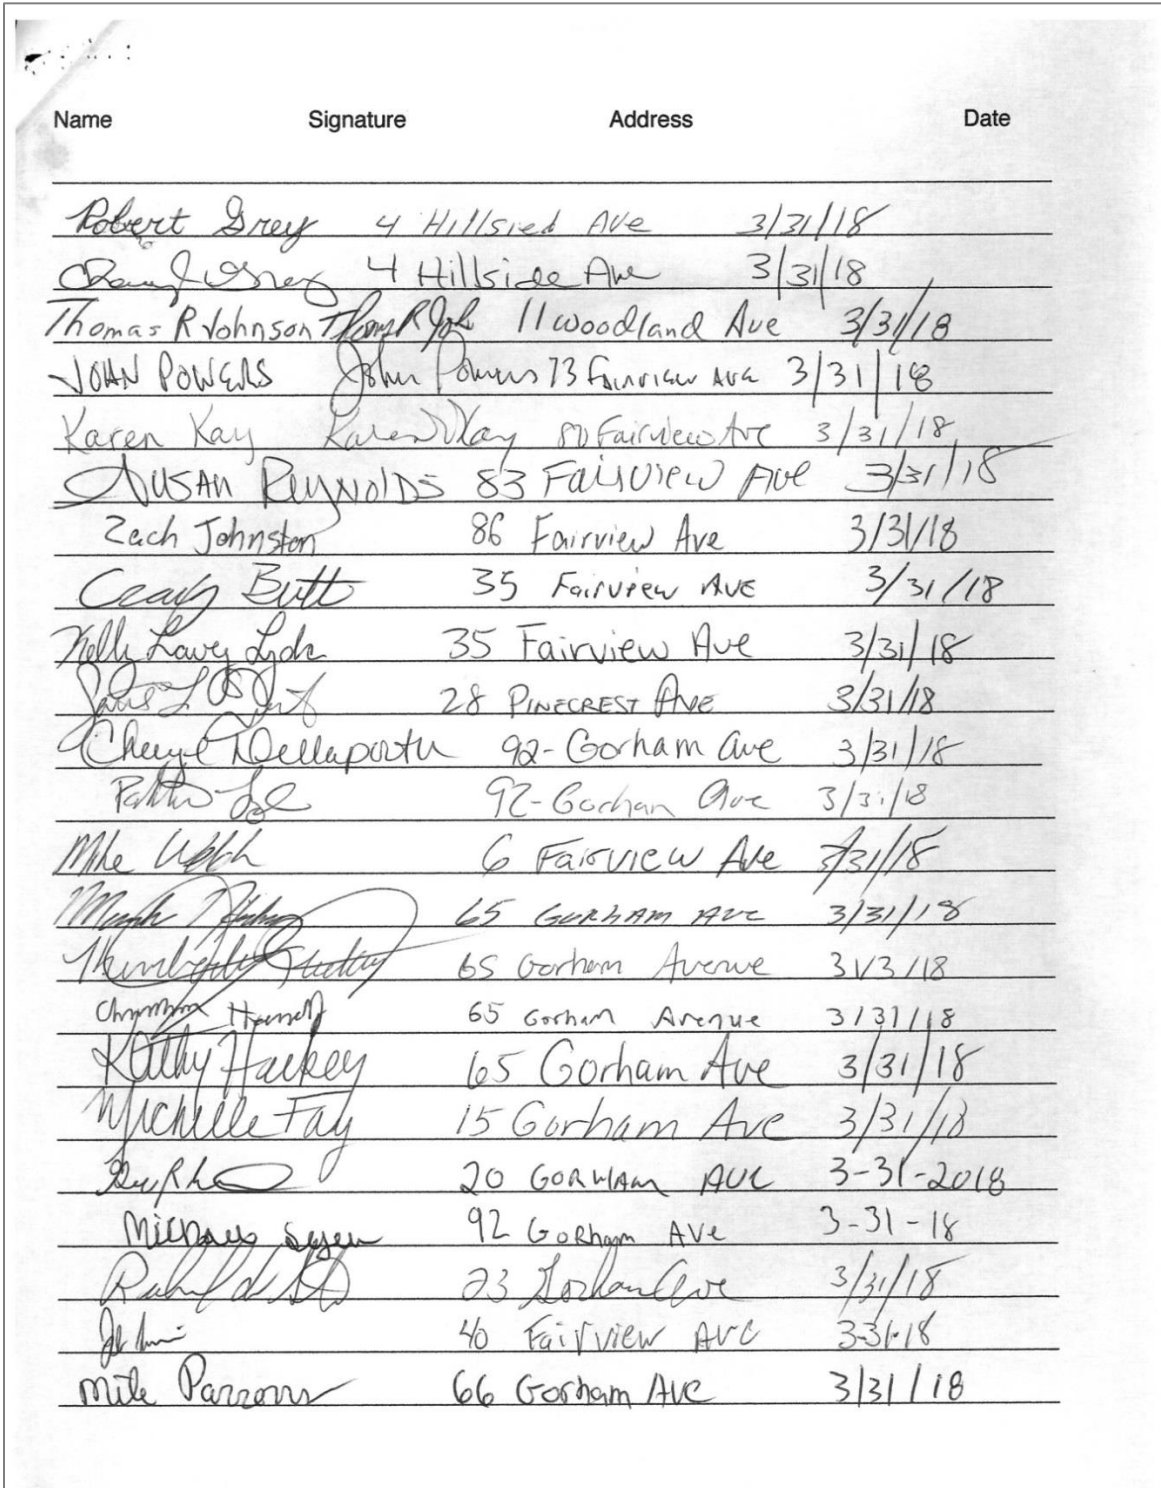 Name Signature Address Date
Robert Grey 4 Hillsied Ave 3/31/18
4 Hillside Ave 3/31/18
Thomas R Johnson Thomas R Joh 11 Woodland Ave 3/31/18
JOHN POWERS John Powers 73 Fairview Ave 3/31/18
Karen Kay Karen Kay 80 Fairview Ave 3/31/18
SUSAN Reynolds 83 FAIRVIEW AVE 3/31/18
Zach Johnston 86 Fairview Ave 3/31/18
Craig Butt 35 Fairview AVE 3/31/18
Kelly 35 Fairview Ave 3/31/18
28 PINECREST AVE 3/31/18
Cheryl Dellaporta 92-Gorham ave 3/31/18
92-Gorham ave 3/31/18
Mike 6 FAIRVIEW Ave 3/31/18
65 GORHAM AVE 3/31/18
Kimberly 65 Gorham Avenue 31/3/18
65 Gorham Avenue 3/31/18
Kathy Hackey 65 Gorham Ave 3/31/18
Michelle Fay 15 Gorham Ave 3/31/18
20 GORHAM AVE 3-31-2018
92 GoRham AVe 3-31-18
23 Gorham Ave 3/31/18
40 Fairview Ave 3-31-18
Mike 66 Gorham AVE 3/31/18